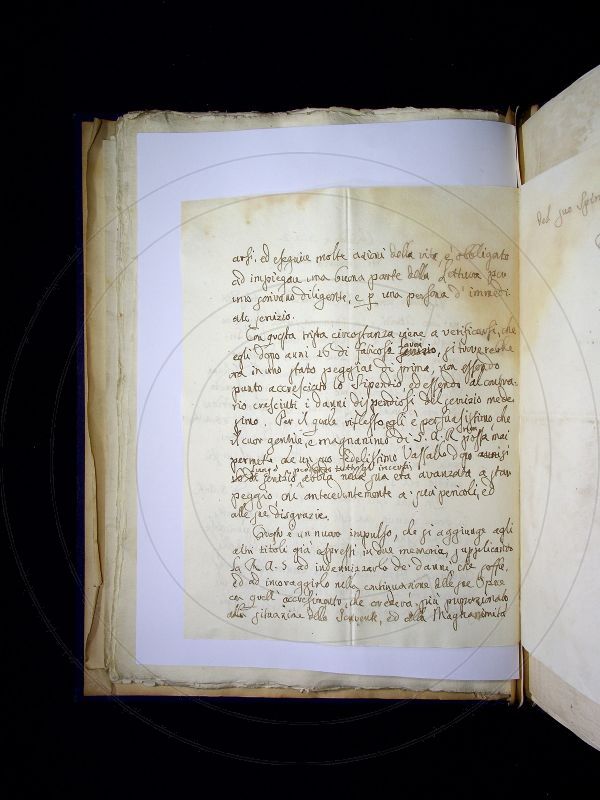 arsi, ed eseguire molte azioni della vita è obbligato
ad impiegare una buona parte della Lettura per
uno scrivano diligente, e p una persona d' immedi-
ato servizio.
Con questa trista circostanza viene a verificarsi, che
egli dopo anni 26 di faticosi lavori si troverebbe
ora in uno stato peggior di prima, non essendo
punto accresciuto lo stipendio, ed essendo al contra-
rio cresciuti i danni dispendiosi del servizio mede-
simo. Per il quale riflesso egli è persuasissimo che
il cuor gentile, e magnanimo di S. A. R. possa mai
permettere che un suo Fedelissimo Vassallo dopo
debba nella sua età avanzata a star
peggio che antecedentemente a' suoi pericoli, ed
alle sue disgrazie.
Questo è un nuovo impulso, che si aggiunge agli
altri titoli già espressi in due memorie, supplicando
la R. A. S. ad indennizzarlo de' danni, che soffre,
ed ad incoraggirlo nella continuazione delle sue Opere
con quell' accrescimento, che crederà più proporzionato
alla situazione dello Scrivente, ed alla Magnanimità
del suo